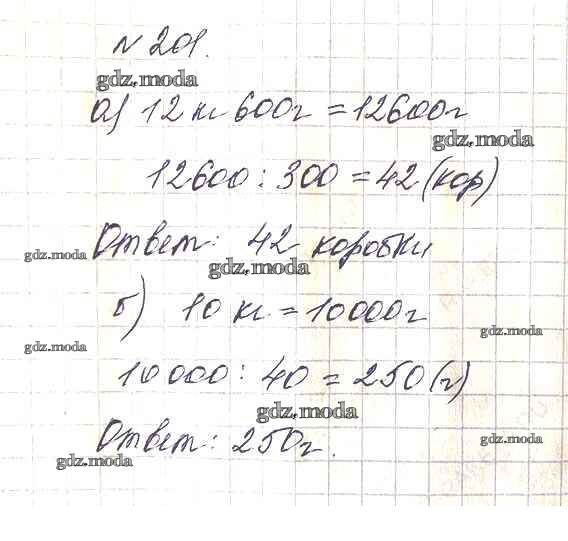 № 201.
gdz.moda
а) 12 кг 600г = 12600г
gdz.moda
12600 : 300 = 42 (кор)
Ответ: 42 коробки
gdz.moda
gdz.moda
б) 10 кг = 10000г
gdz.moda
gdz.moda
10 000 : 40 = 250 (г)
gdz.moda
Ответ: 250г.
gdz.moda
gdz.moda